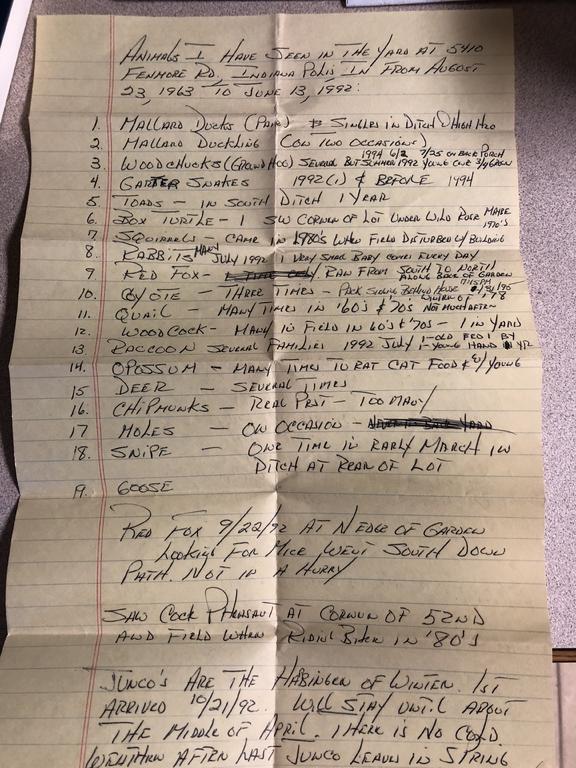 Animals I Have Seen in The Yard at 5410
Fenmore Rd, Indianapolis, In From August
23, 1963 To June 13, 1992:
1. Mallard Ducks (Pair) & Singles in Ditch @ High H2O
2. Mallard Duckling (On Two Occasions)
3. Woodchucks (Ground Hog) Several But Summer 1992 Young One
1994 6/2 7/25 on Back Porch
4. Garter Snakes 1992 (1) & Before 1994
5 Toads - in South Ditch 1 Year
6. Box Turtle - 1 SW Corner of Lot Under Wild Rose Maybe 1970's
7 Squirrels - Came in 1980's When Field Disturbed by Building
8. Rabbits Many July 1992 1 Very Small Baby Comes Every Day
9 Red Fox - Ran From South To North
Along Back of Garden
10. Coyote - Three Times - Pack Behind House
Winter of '78
11. Quail - Many Times in '60's & 70's Not Much After
12. Woodcock - Many in Field in 60's & '70s - 1 in Yard
13 Raccoon Several Families 1992 July 1-Old Fed 1 By
1-Young Hand
14. Opossum - Many Times To Eat Cat Food & w/ Young
15 Deer - Several Times
16. Chipmunks - Real Pest - Too Many
17 Moles - On Occasion -
18. Snipe - One Time in Early March in
Ditch at Rear of Lot
9. Goose
Red Fox 9/22/92 At N Edge of Garden
Looking For Mice Went South Down
Path. Not in A Hurry
Saw Cock Pheasant at Cornun of 52nd
And Field When Riding Bike in '80's
Junco's Are The Habinger of Winter. 1st
Arrived 10/21/92. Will Stay Until About
The Middle of April. There is No Cold
Weather After Last Junco Leaves in Spring